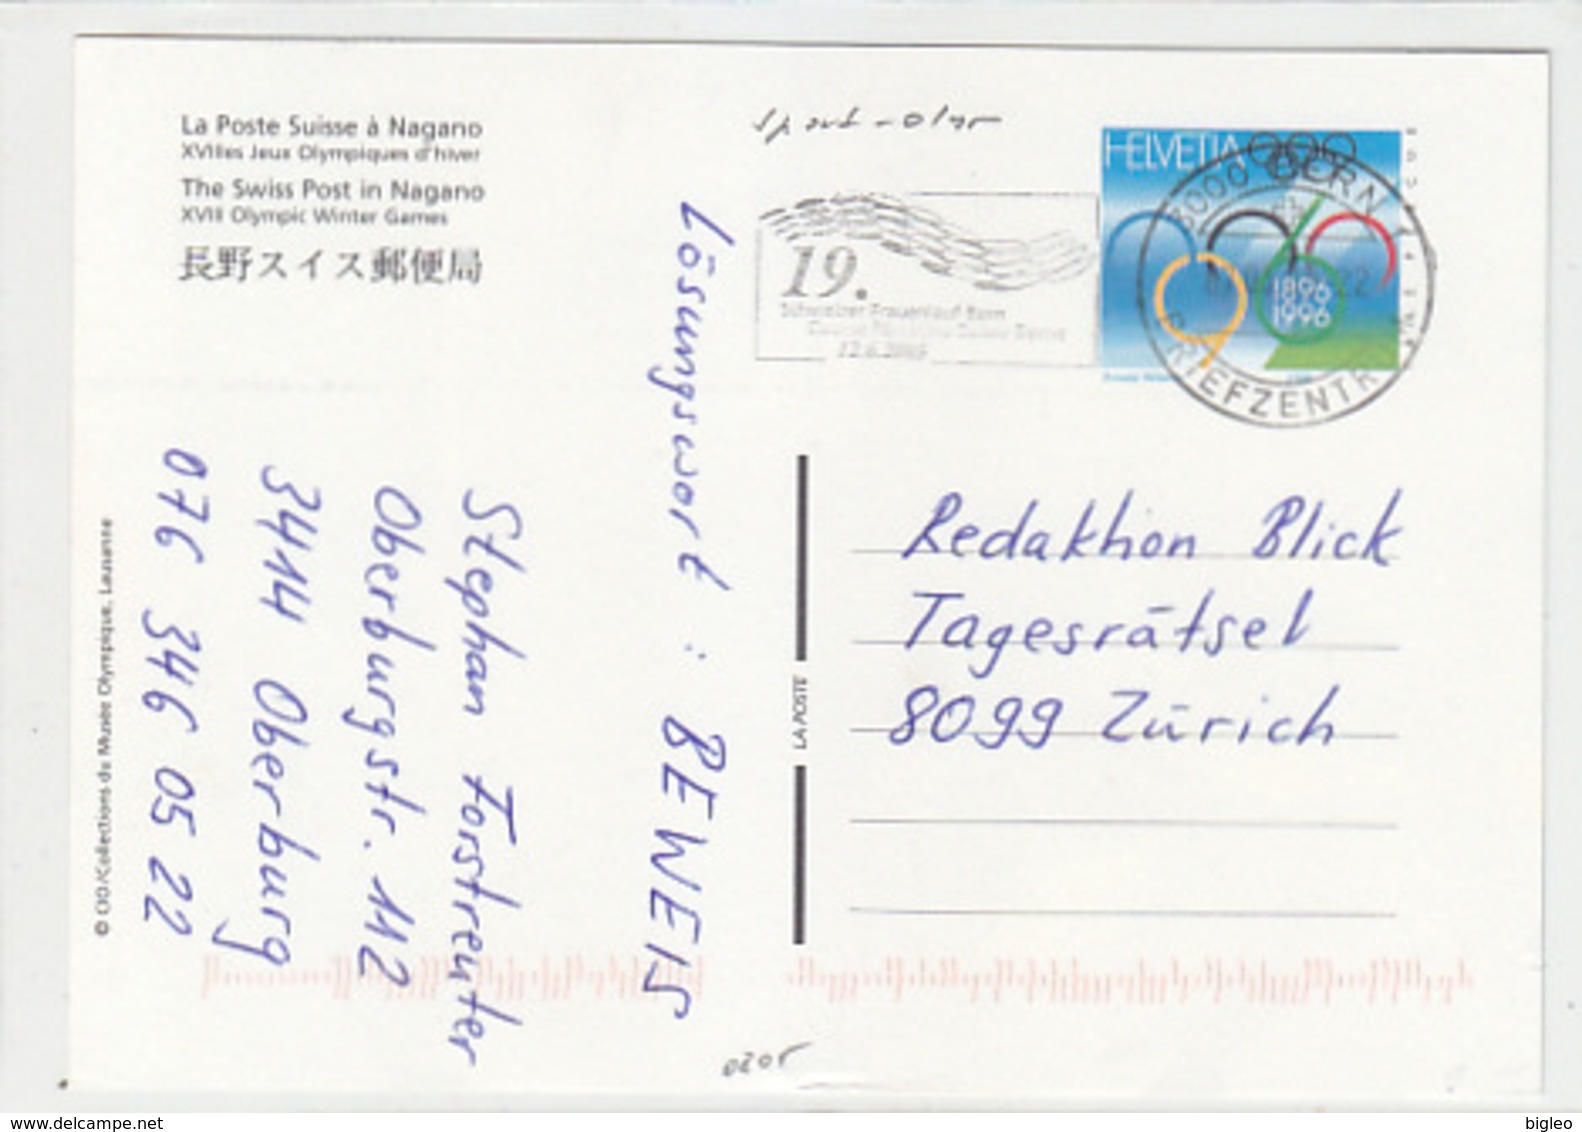 La Poste Suisse à Nagano
XVIIIes Jeux Olympiques d'hiver
The Swiss Post in Nagano
XVIII Olympic Winter Games
長野スイス郵便局
© CIO/Collections du Musée Olympique, Lausanne
Lösungswort : BEWEIS
Stephan Forstreuter
Oberburgstr. 112
3414 Oberburg
076 346 05 22
19.
Schweizer Frauenlauf Bern
12.6.2005
HELVETIA
1896
1996
3000 BERN
BRIEFZENTR
LA POSTE
Redaktion Blick
Tagesrätsel
8099 Zürich
0205
www.delcampe.net
bigleo